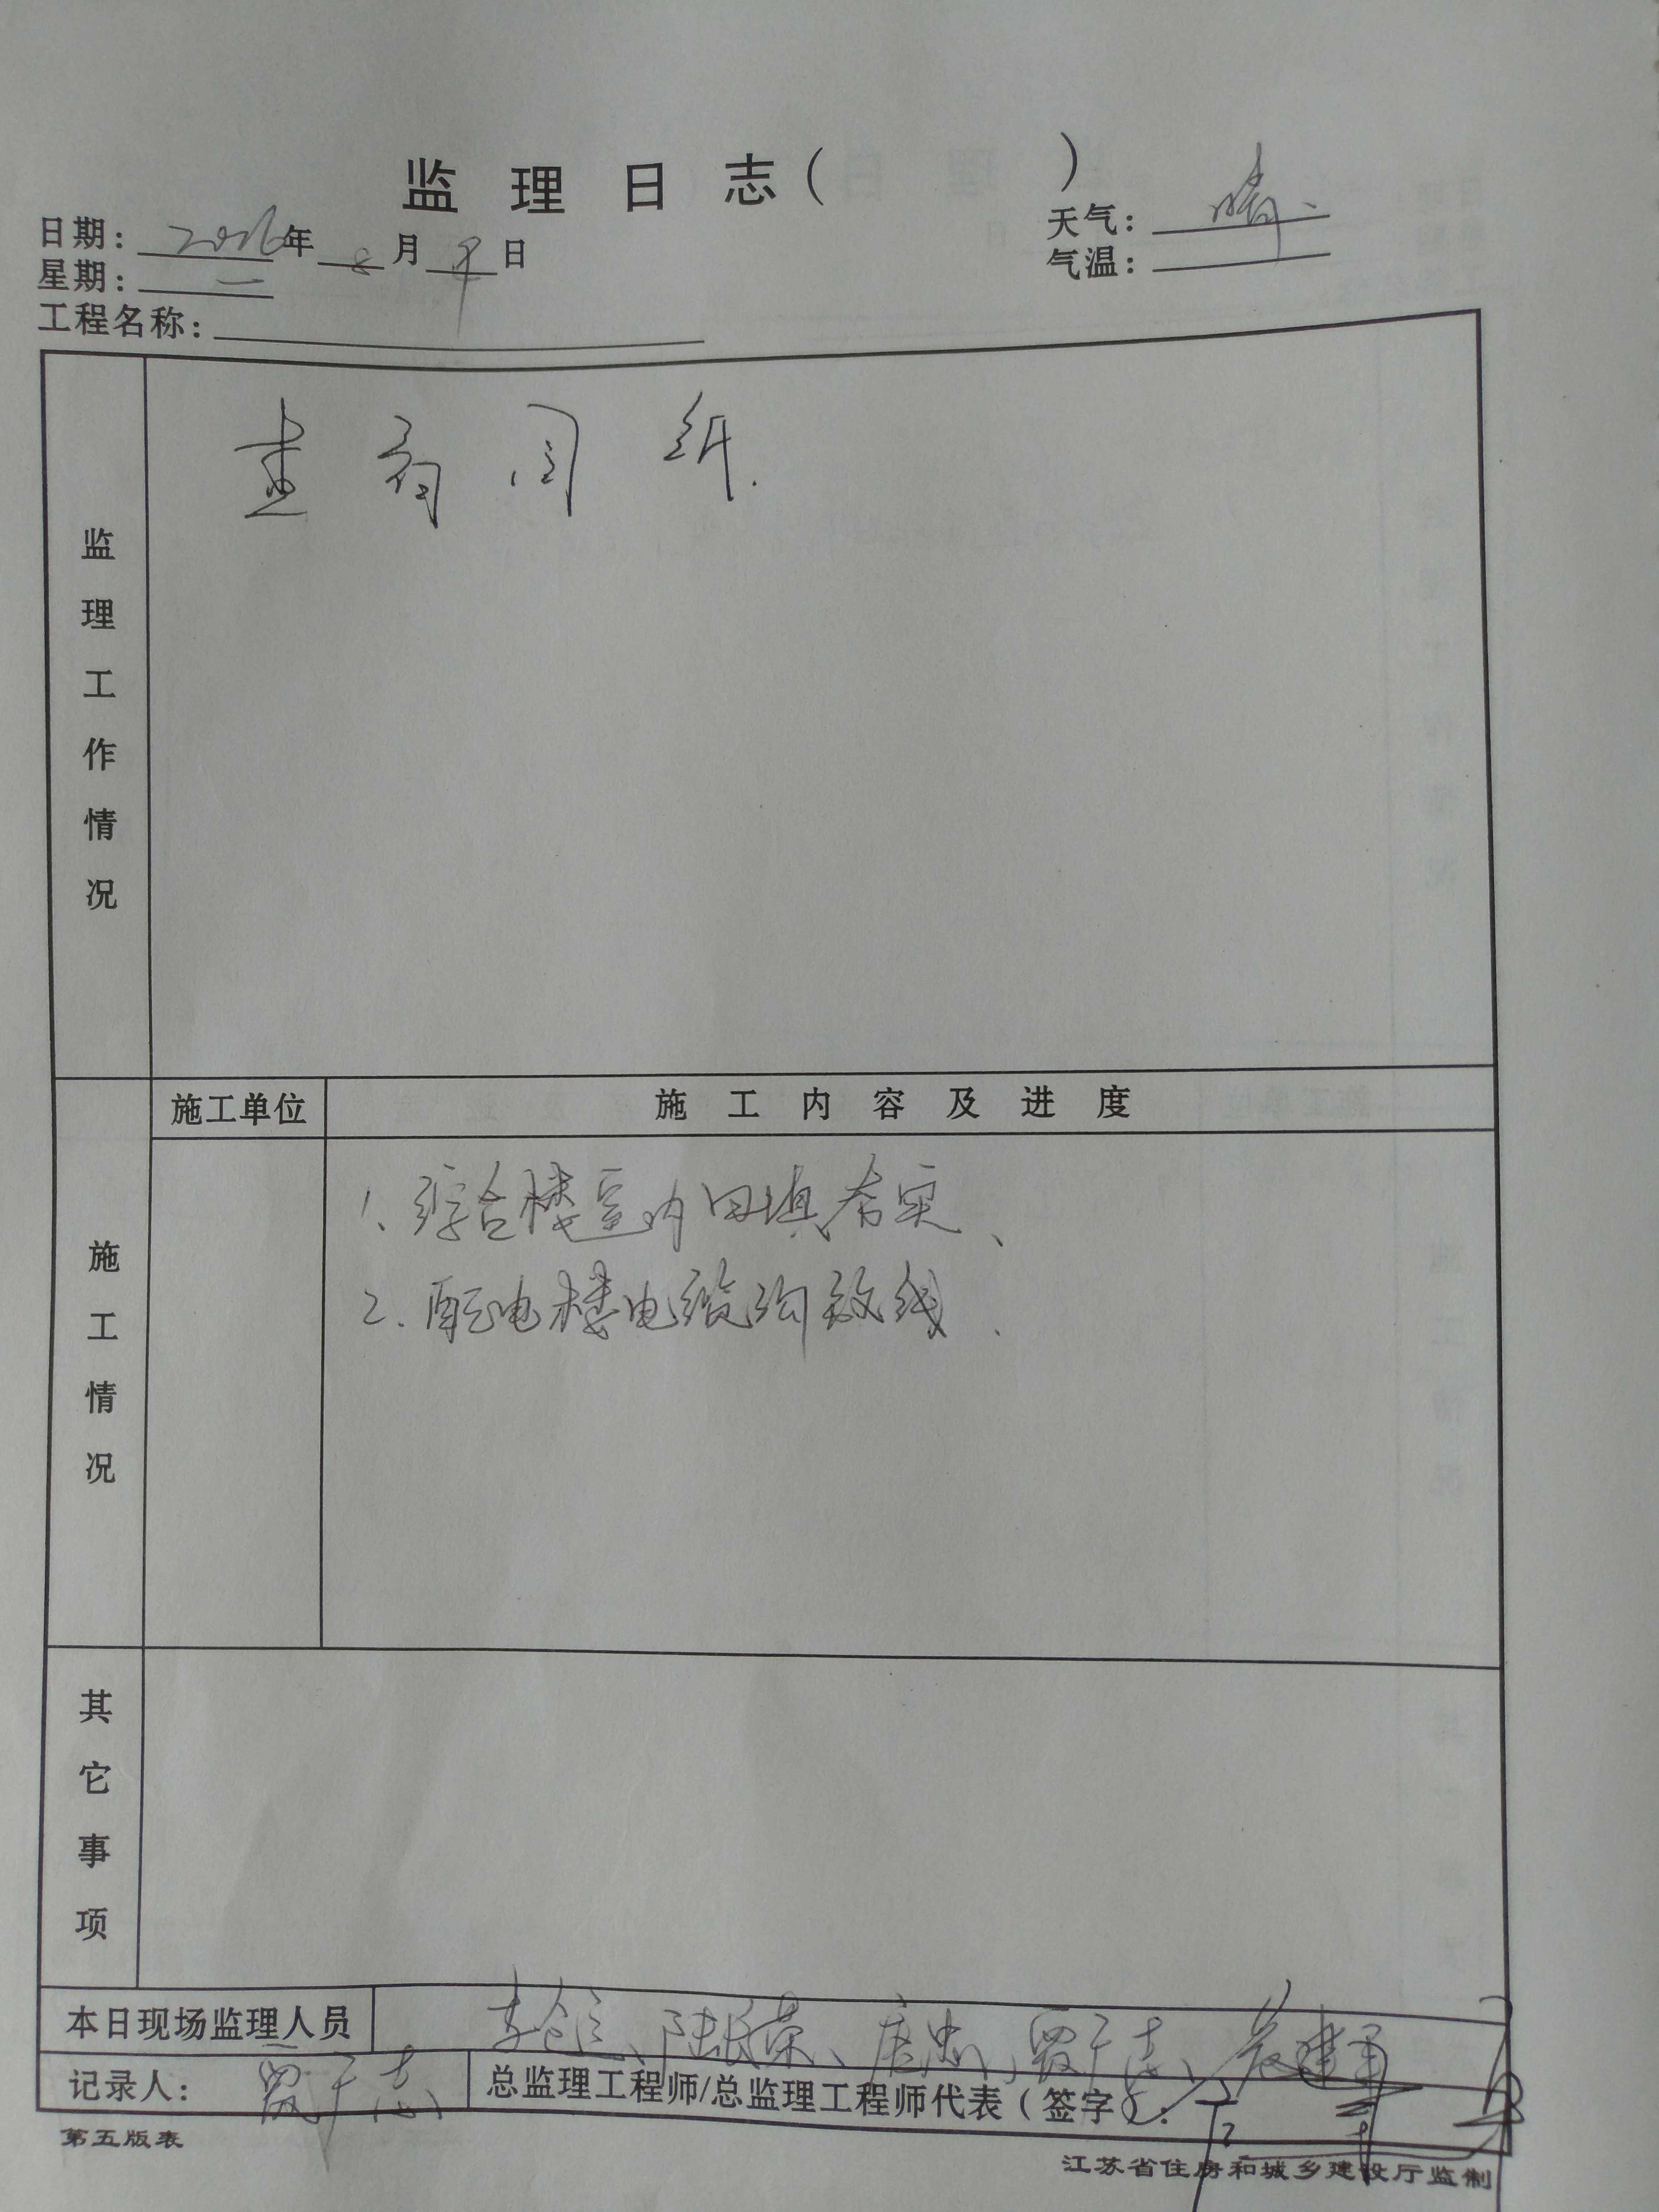 监理日志（ ）
日期：2016年8月9日
天气：晴.
星期：二
气温：
工程名称：
监理工作情况
查看图纸.
施工情况
施工单位
施工内容及进度
1、综合楼室内回填夯实、
2.配电楼电缆沟放线.
其它事项
本日现场监理人员 陆 荣、唐忠、贾于志、 建军
记录人：贾于志
总监理工程师/总监理工程师代表（签字）：
第五版表
江苏省住房和城乡建设厅监制